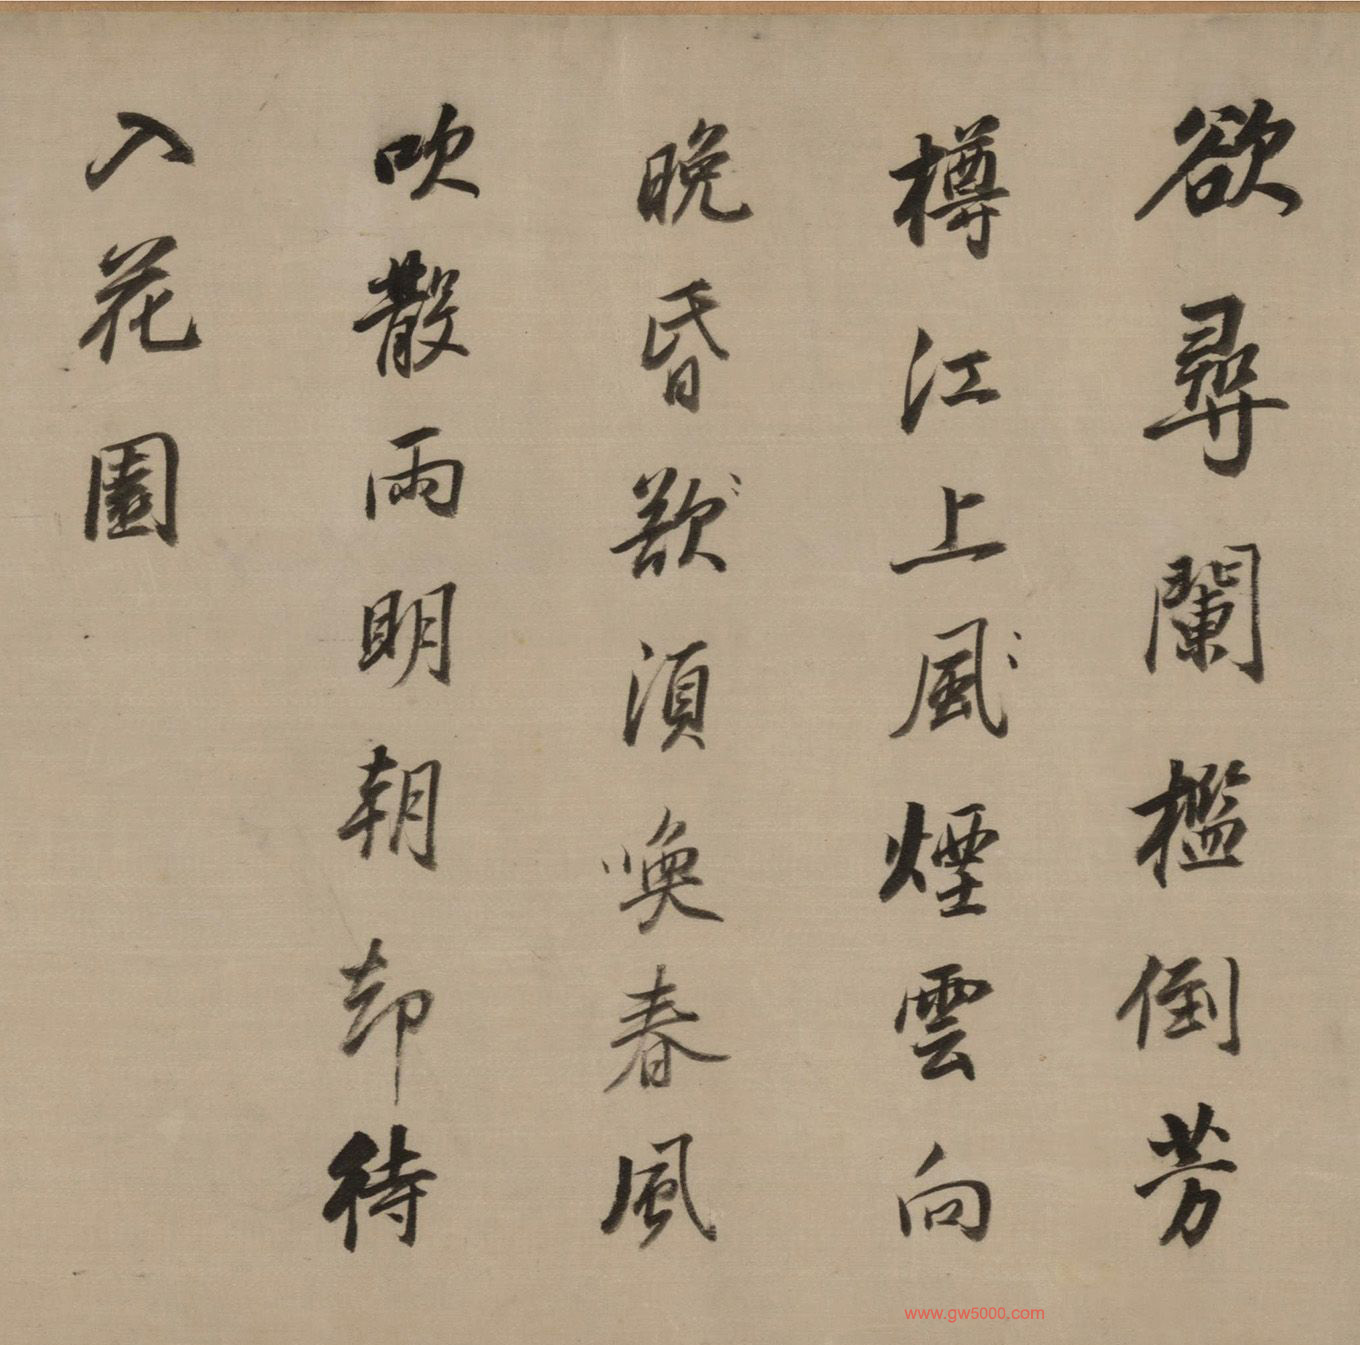 欲尋闌檻倒芳
樽江上風煙雲向
晚昏湏喚春風
吹散雨明朝却待
入花園
www.gw5000.com